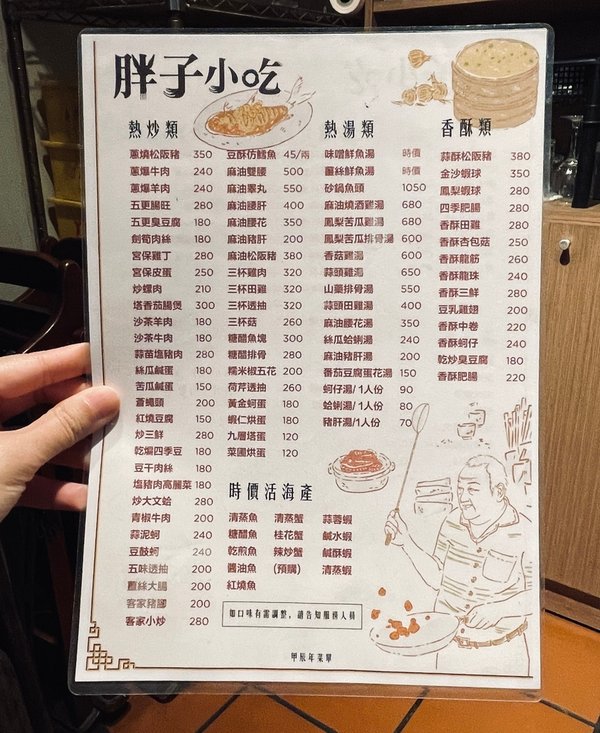 胖子小吃
熱炒類
蔥燒松阪豬 350
蔥爆牛肉 240
蔥爆羊肉 240
五更腸旺 280
五更臭豆腐 180
劍筍肉絲 180
宮保雞丁 280
宮保皮蛋 250
炒螺肉 210
塔香茄腸煲 300
沙茶羊肉 180
沙茶牛肉 180
蒜苗塩豬肉 280
絲瓜鹹蛋 180
苦瓜鹹蛋 150
蒼蠅頭 200
紅燒豆腐 150
炒三鮮 280
乾煸四季豆 180
豆干肉絲 180
塩豬肉高麗菜 180
炒大文蛤 280
青椒牛肉 200
蒜泥蚵 240
豆鼓蚵 240
五味透抽 200
薑絲大腸 200
客家豬腳 200
客家小炒 280
豆酥仿鱈魚 45/兩
麻油雙腰 500
麻油睪丸 550
麻油腰肝 400
麻油腰花 350
麻油豬肝 200
麻油松阪豬 380
三杯雞肉 320
三杯田雞 320
三杯透抽 320
三杯菇 260
糖醋魚塊 300
糖醋排骨 280
糯米椒五花 200
荷芹透抽 260
黃金蚵蛋 180
蝦仁烘蛋 180
九層塔蛋 120
菜圃烘蛋 120
熱湯類
味噌鮮魚湯 時價
薑絲鮮魚湯 時價
砂鍋魚頭 1050
麻油燒酒雞湯 680
鳳梨苦瓜雞湯 680
鳳梨苦瓜排骨湯 600
香菇雞湯 600
蒜頭雞湯 650
山藥排骨湯 550
蒜頭田雞湯 400
麻油腰花湯 350
絲瓜蛤蜊湯 240
麻油豬肝湯 200
番茄豆腐蛋花湯 150
蚵仔湯/1人份 90
蛤蜊湯/1人份 80
豬肝湯/1人份 70
香酥類
蒜酥松阪豬 380
金沙蝦球 350
鳳梨蝦球 280
四季肥腸 280
香酥田雞 280
香酥杏包菇 250
香酥龍筋 260
香酥龍珠 240
香酥三鮮 280
豆乳雞翅 200
香酥中卷 220
香酥蚵仔 240
乾炒臭豆腐 180
香酥肥腸 220
時價活海產
清蒸魚 清蒸蟹 蒜蓉蝦
糖醋魚 桂花蟹 鹹水蝦
乾煎魚 辣炒蟹 鹹酥蝦
醬油魚 (預購) 清蒸蝦
紅燒魚
如口味有需調整，請告知服務人員
甲辰年菜單